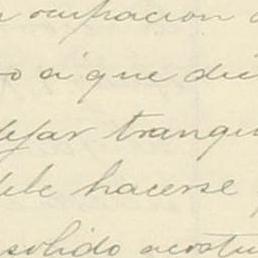 ocupacion
o a que die
dejar tranqui
ble hacerse
solido acostu